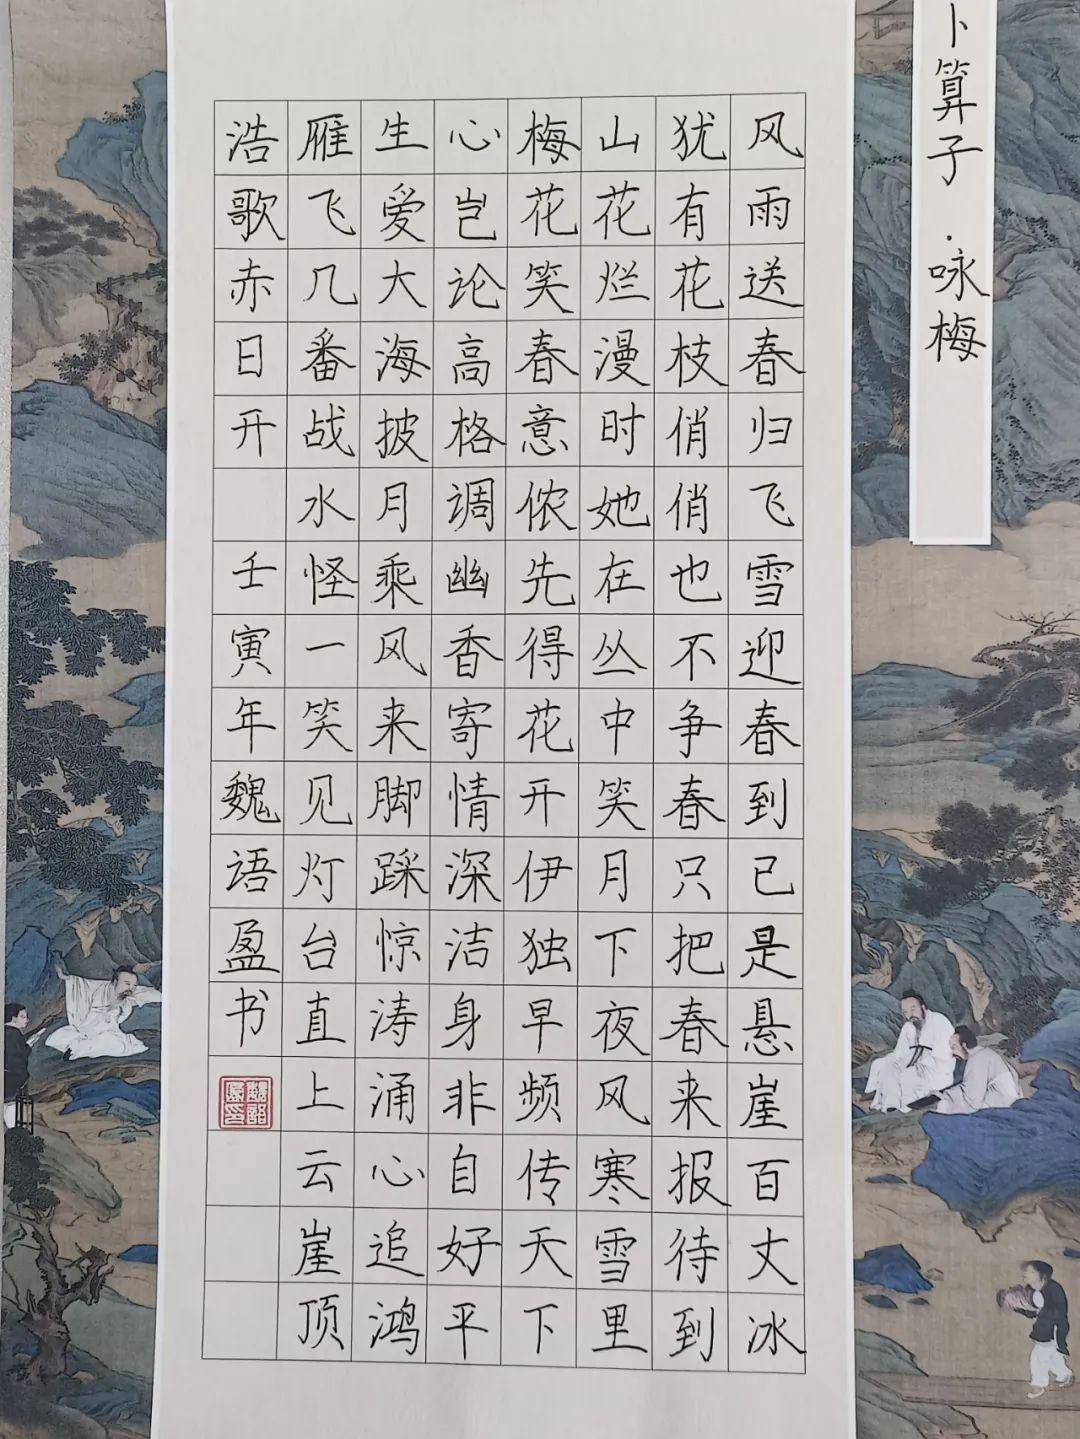 卜算子·咏梅
风雨送春归飞雪迎春到已是悬崖百丈冰
犹有花枝俏俏也不争春只把春来报待到
山花烂漫时她在丛中笑月下夜风寒雪里
梅花笑春意侬先得花开伊独早频传天下
心岂论高格调幽香寄情深洁身非自好平
生爱大海披月乘风来脚踩惊涛涌心追鸿
雁飞几番战水怪一笑见灯台直上云崖顶
浩歌赤日开 壬寅年魏语盈书